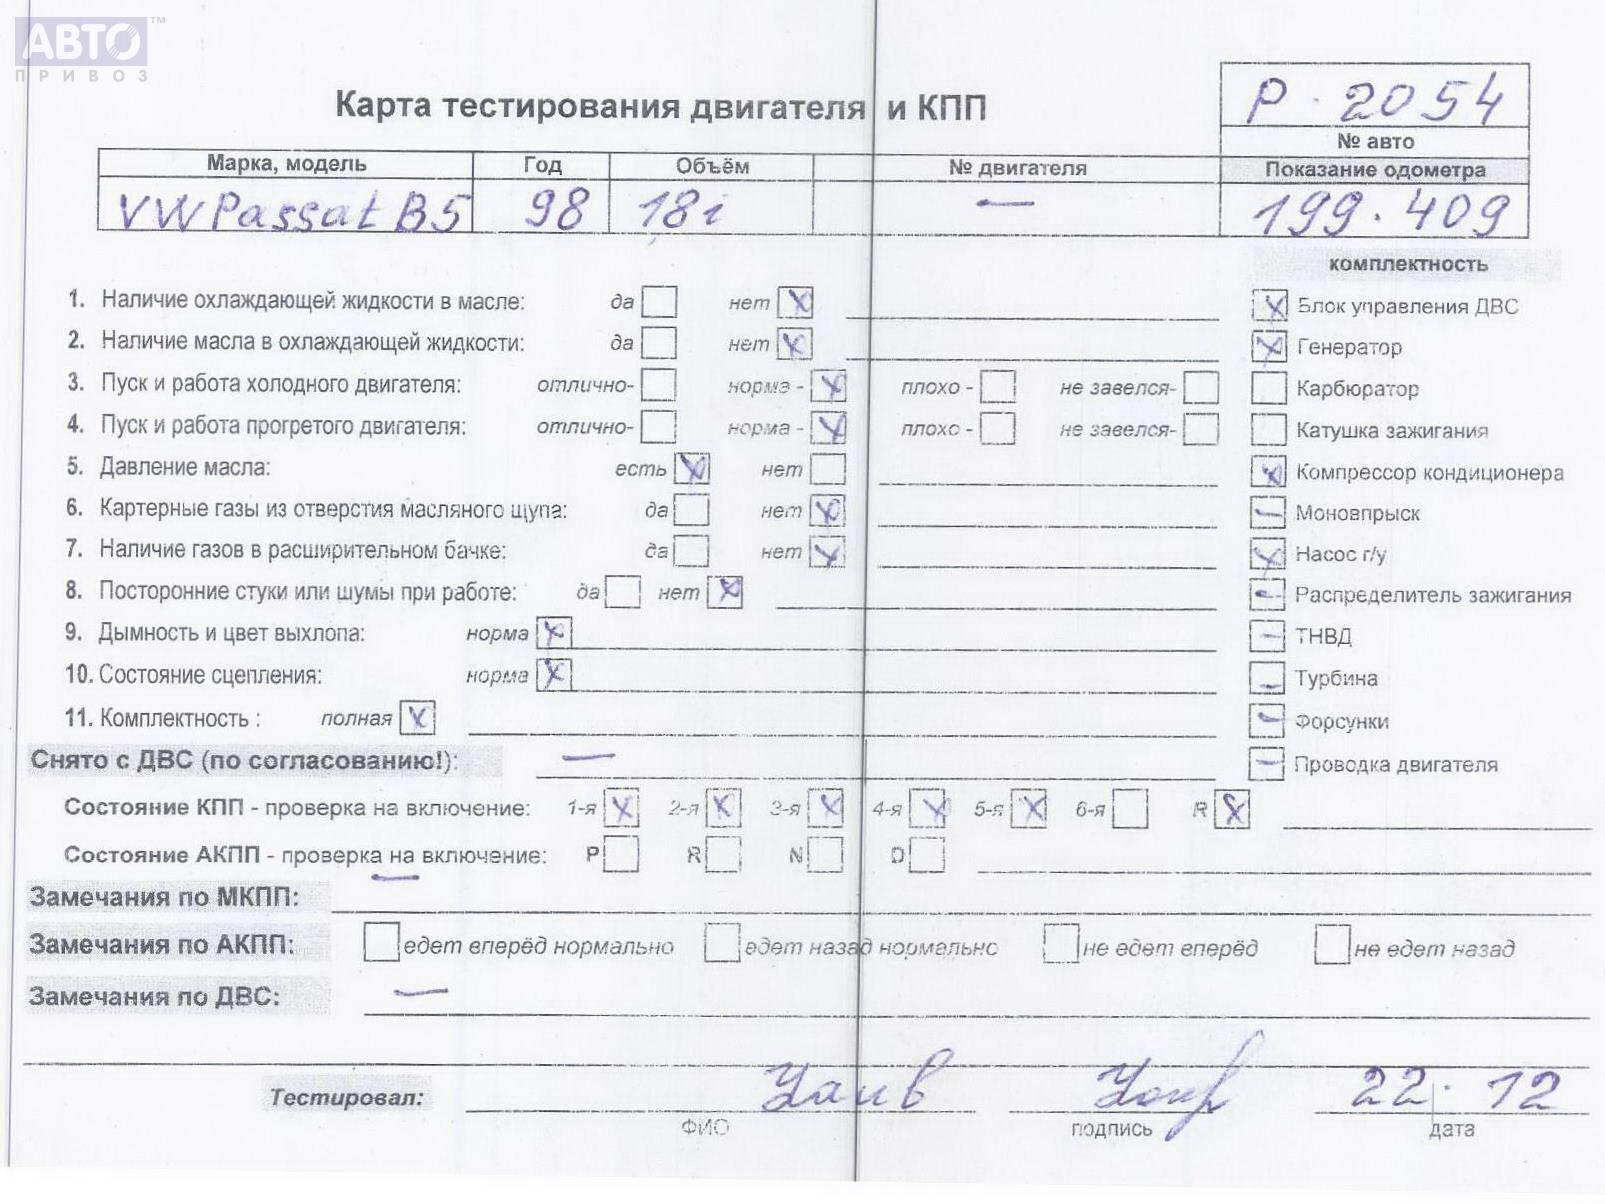 АВТО™
ПРИВОЗ
Р - 2054
Карта тестирования двигателя и КПП
№ авто
Марка, модель Год Объём № двигателя Показание одометра
VW Passat B5 98 18i — 199.409
комплектность
1. Наличие охлаждающей жидкости в масле: да нет X Блок управления ДВС X
2. Наличие масла в охлаждающей жидкости: да нет X Генератор X
3. Пуск и работа холодного двигателя: отлично- норма - X плохо - не завелся- Карбюратор
4. Пуск и работа прогретого двигателя: отлично- норма - X плохо - не завелся- Катушка зажигания
5. Давление масла: есть X нет X Компрессор кондиционера
6. Картерные газы из отверстия масляного щупа: да нет X — Моновпрыск
7. Наличие газов в расширительном бачке: да нет X X Насос г/у
8. Посторонние стуки или шумы при работе: да нет X — Распределитель зажигания
9. Дымность и цвет выхлопа: норма X — ТНВД
10. Состояние сцепления: норма X — Турбина
11. Комплектность : полная X — Форсунки
Снято с ДВС (по согласованию!): — — Проводка двигателя
Состояние КПП - проверка на включение: 1-я X 2-я X 3-я X 4-я X 5-я X 6-я R X
Состояние АКПП - проверка на включение: P R N D
Замечания по МКПП: —
Замечания по АКПП: едет вперёд нормально едет назад нормально не едет вперёд не едет назад
Замечания по ДВС: —
Тестировал: 22.12
ФИО подпись дата